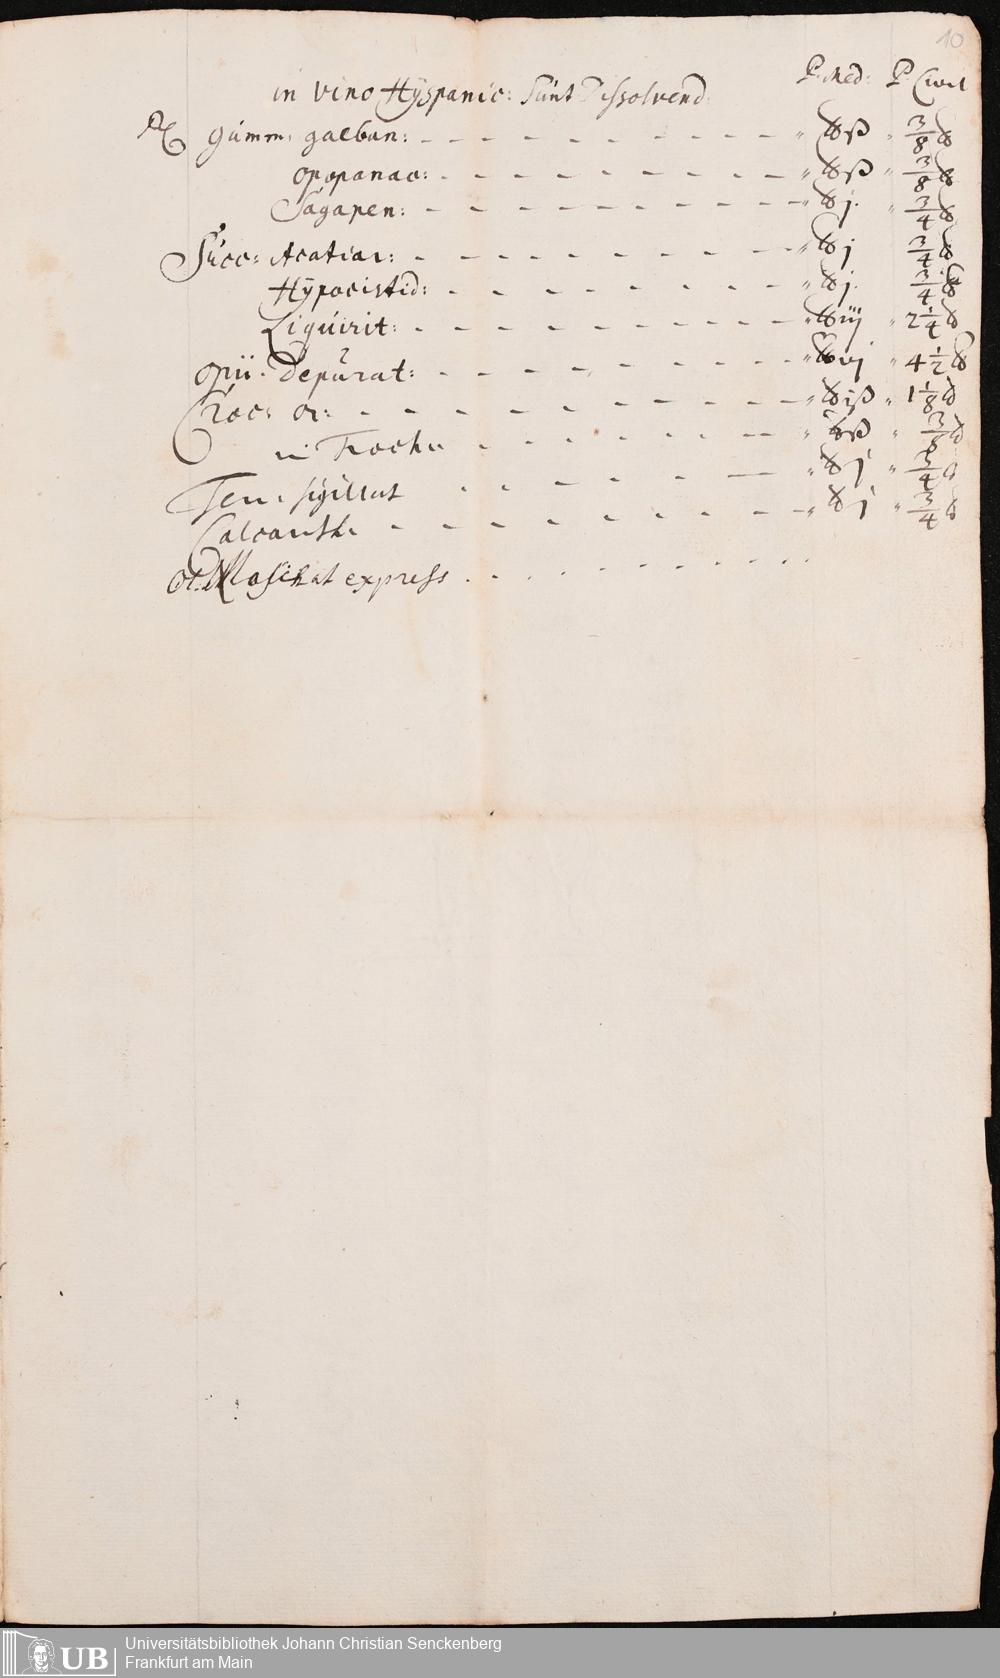 10
P. Med: P. Civil
in vino Hÿspanic: sunt Dissolvend:
℞ Gumm: galban: - - - - - - - - - " ℔ß " 3/8 ℔
opopanac: - - - - - - - - - " ℔ß " 3/8 ℔
Sagapen: - - - - - - - - - " ℔j. " 3/4 ℔
Succ: Acatiae: - - - - - - - - - " ℔j 3/4 ℔
Hÿpocistid: - - - - - - - - - " ℔j. 3/4 ℔
Liquirit: - - - - - - - - - " ℔iij " 2 1/4 ℔
opii. Depurat: - - - - - - - - - " ℔vj " 4 1/2 ℔
Croc: or: - - - - - - - - - " ℔jß " 1 1/8 ℔
in Troch: - - - - - - - " ℔ß " 3/8 ℔
Terr: sigillat - - - - - - - " ℔j " 3/4 ℔
Calcanth: - - - - - - - - - " ℔j " 3/4 ℔
ol. Moschat express . . . . . . . . . .
UB Universitätsbibliothek Johann Christian Senckenberg
Frankfurt am Main